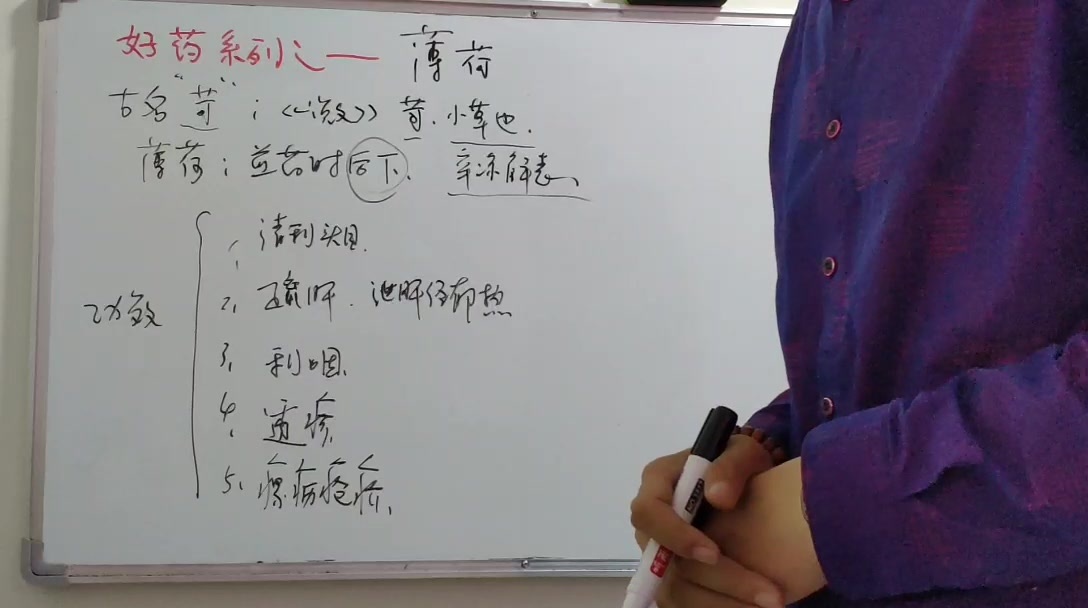 好药系列之一 薄荷
古名“苛”；《说文》苛、小草也.
薄荷；煎药时后下. 辛凉解表、
功效
1、清利头目.
2、疏肝. 泄肝经郁热
3、利咽、
4、透疹
5、瘰疬疮疥、